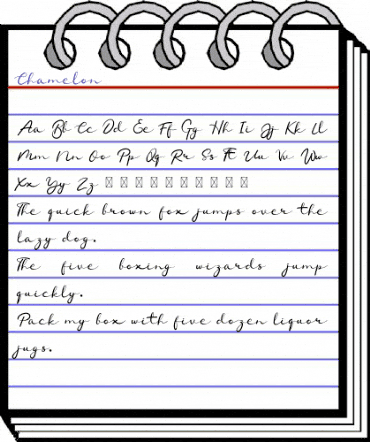 Chamelon
Aa Bb Cc Dd Ee Ff Gg Hh Ii Jj Kk Ll
Mm Nn Oo Pp Qq Rr Ss Tt Uu Vv Ww
Xx Yy Zz
The quick brown fox jumps over the
lazy dog.
The five boxing wizards jump
quickly.
Pack my box with five dozen liquor
jugs.